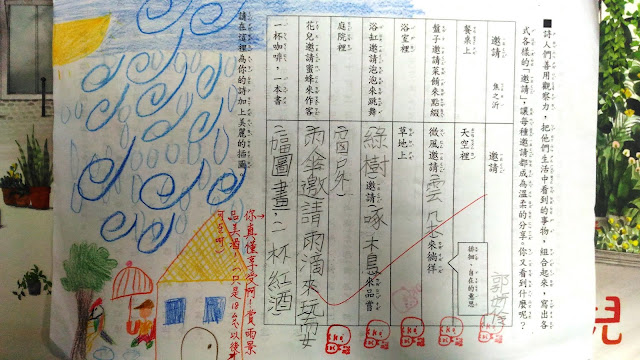 ■詩人們善用觀察力,把他們生活中看到的事物,組合起來,寫出各
式各樣的「邀請」,讓每種邀請都成為溫柔的分享。你又看到什麼呢?
邀請 焦之沂
餐桌上
盤子邀請菜餚來點綴
浴室裡
浴缸邀請泡泡來跳舞
庭院裡
花兒邀請蜜蜂來作客
一杯咖啡,一本書
邀請 郭
天空裡
微風邀請(雲朵)來徜徉
徜徉:自在的意思
草地上
(綠樹)邀請(啄木息)來品嘗
(窗口外)
雨傘邀請雨滴來玩耍
(一幅圖畫),(一杯紅酒)
請在這裡為你的詩加上美麗的插圖
你真懂享受啊!賞雨景
品美酒,只是18歲以後才
可
兒